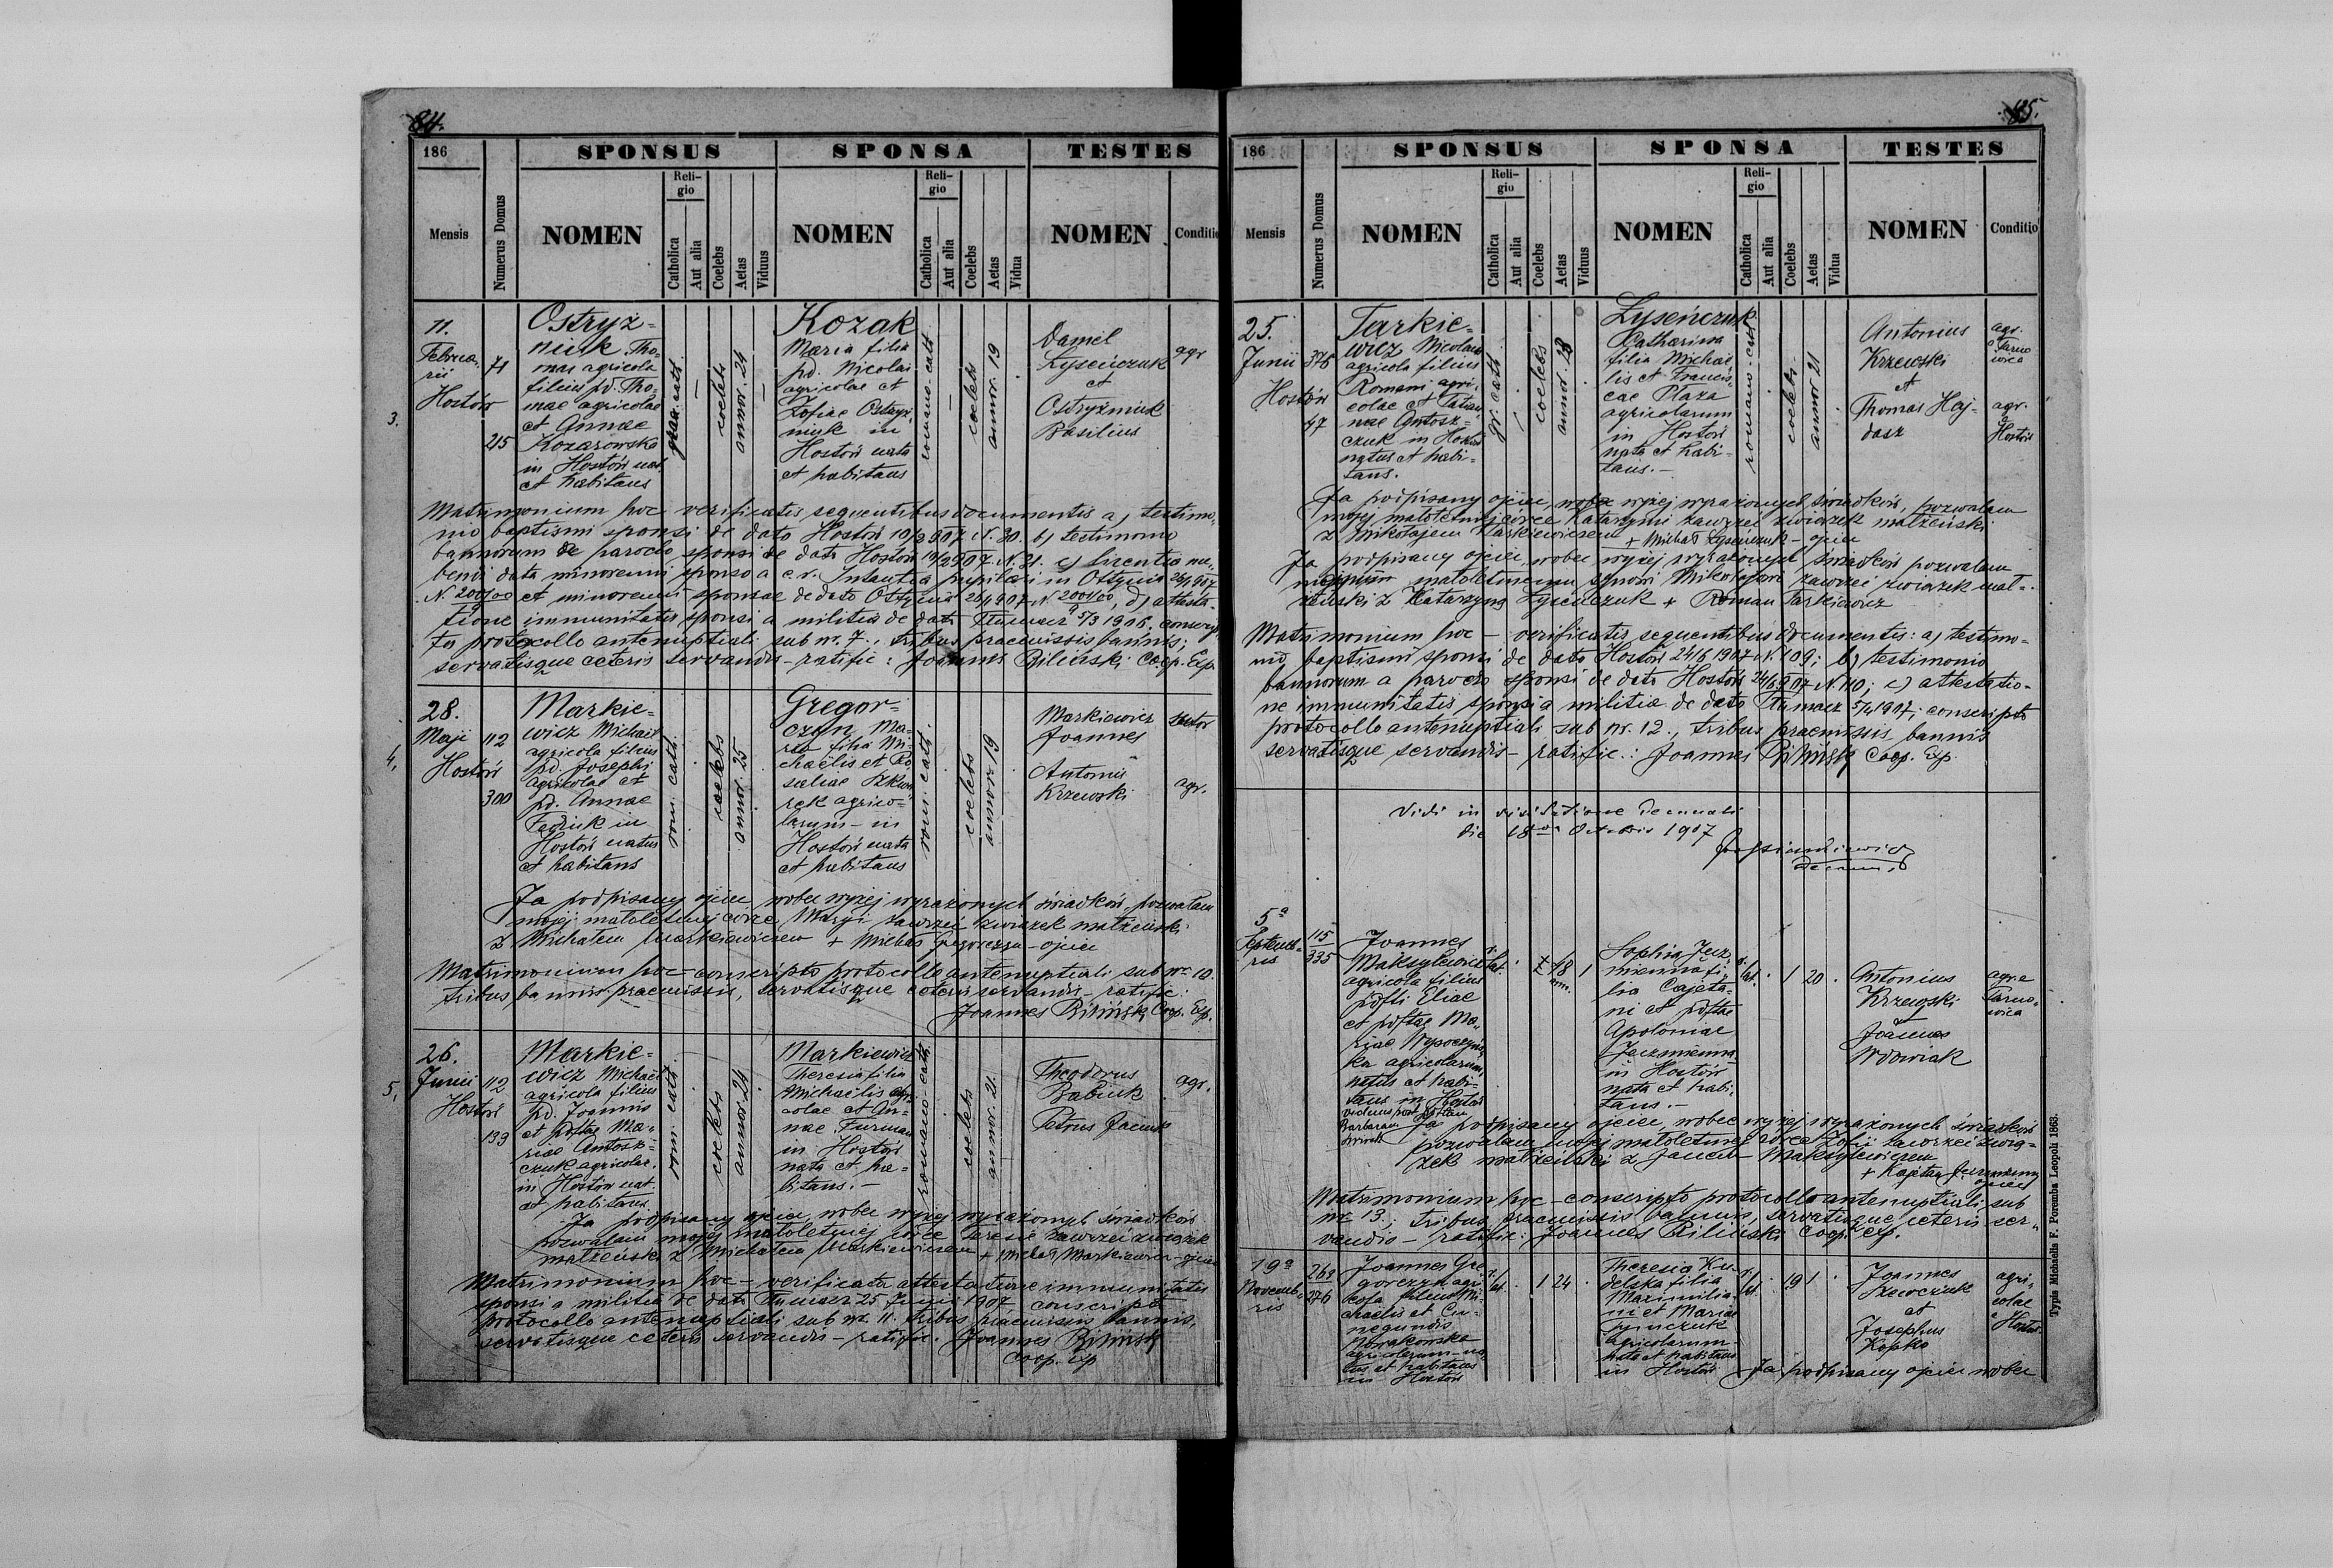 84.
186
SPONSUS
SPONSA
TESTES
Mensis
Numerus Domus
NOMEN
Religio
Catholica
Aut alia
Coelebs
Aetas
Viduus
NOMEN
Religio
Catholica
Aut alia
Coelebs
Aetas
Vidua
NOMEN
Conditio
3.
11.
Februa
rii
Hostów
71
215
Ostryż-
niuk Tho-
mas agricola
filius pd. Tho-
mae agricolae
et Annae
Kozarowska
in Hostów nat.
et habitans
graec. cath.
coelebs
annor. 24
Kozak
Maria filia
pd. Nicolai
agricolae et
Zofiae Ostryż
niuk in
Hostów nata
et habitans
romano-cath
coelebs
annor. 19
Daniel
Łyseńczuk
et
Ostryżniuk
Basilius
agr
Matrimonium hoc verificatis sequentibus documentis a) testimo-
nio baptismi sponsi de dato Hostów 10/2 907 N. 30. b) testimonio
bannorum de parocho sponsi de dato Hostów 10/2 907 N. 31. c) licentia nu-
bendi data minorenni sponso a c.r. Instantia pupilari in Ottynia
N. 200/00 et minorenni sponsae de dato Ottynia N 200/00, d) attesta-
tione immunitatis sponsi a militia de dato Tłumacz 5/3 1906. conscrip
to protocollo antenuptiali sub nr. 7., tribus praemissis bannis;
servatisque ceteris servandis - ratific: Joannes Biliński Coop. Exp.
4,
28.
Maji
Hostów
112
300
Markie-
wicz Michael
agricola filius
pd. Josephi
agricolae et
pd. Annae
Fediuk in
Hostów natus
et habitans
rom. cath.
coelebs
annor. 25
Gregor-
czyn Ma-
ria filia Mi-
chaelis et Ro
saliae
rek agrico-
larum - in
Hostów nata
et habitans
rom. cath.
coelebs
annor 19
Markiewicz
Joannes
Antonii
Krzewski
sutor
agr.
Ja podpisany ojciec wobec wyżej wyrażonych świadków, pozwalam
mojej małoletniej córce Maryi zawrzeć związek małżeński
z Michałem Markiewiczem + Michał Gregorczyn - ojciec
Matrimonium hoc - conscripto protocollo antenuptiali sub nr. 10.
tribus bannis praemissis, servatisque ceteris servandis - ratific:
Joannes Biliński Coop. Exp.
5,
26.
Junii
Hostów
112
139
Markie-
wicz Michael
agricola filius
pd. Joannis
et pdftae Ma-
riae Antosz-
czuk agricolar.
in Hostów nat.
et habitans
rom. cath.
coelebs
annor 24
Markiewicz
Theresia filia
Michaelis agri
colae et An-
nae Furman
in Hostów
nata et ha-
bitans. -
romano-cath
coelebs
annor. 21.
Theodorus
Babiuk
Petrus Jaciuk
agr.
Ja podpisany ojciec wobec wyżej wyrażonych świadków
pozwalam mojej małoletniej córce Teresie zawrzeć związek
małżeński z Michałem Markiewiczem + Michał Markiewicz - ojciec
Matrimonium hoc - verificata attestatione immunitatis
sponsi a militia de dato Tłumacz 25 Junii 1907, conscripto
protocollo antenuptiali sub nr. 11. tribus praemissis bannis,
servatisque ceteris servandis - ratific. Joannes Biliński
Coop. Exp
85.
186
SPONSUS
SPONSA
TESTES
Mensis
Numerus Domus
NOMEN
Religio
Catholica
Aut alia
Coelebs
Aetas
Viduus
NOMEN
Religio
Catholica
Aut alia
Coelebs
Aetas
Vidua
NOMEN
Conditio
25.
Junii
Hostów
376
47
Tarkie-
wicz Nicolaus
agricola filius
Romani agri-
colae et Tatian-
nae Antosz-
czuk in Hostów
natus et habi-
tans.
gr. cath.
coelebs
annor. 23
Łyseńczuk
Catharina
filia Michae
lis et Francis-
cae Płaza
agricolarum
in Hostów
nata et habi-
tans. -
romano-cath
coelebs
annor 21
Antonius
Krzewski
et
Thomas Haj-
dasz
agr.
Tarno
wica
agr.
Hostów
Ja podpisany ojciec, wobec wyżej wyrażonych świadków, pozwalam
mojej małoletniej córce Katarzynie zawrzeć związek małżeński
z Mikołajem Tarkiewiczem + Michał Łyseńczuk - ojciec
Ja podpisany ojciec, wobec wyżej wyrażonych świadków pozwalam
małoletniemu synowi Mikołajowi zawrzeć związek mał-
żeński z Katarzyną Łyseńczuk + Roman Tarkiewicz
Matrimonium hoc - verificatis sequentibus documentis: a) testimo-
nio baptismi sponsi de dato Hostów 24/6 1907 N. 109; b) testimonio
bannorum a parocho sponsi de dato Hostów 24/6 907 N. 110; c) attestatio-
ne immunitatis sponsi a militia de dato Tłumacz 1907; conscripto
protocollo antenuptiali sub nr. 12., tribus praemissis bannis
servatisque servandis - ratific.: Joannes Biliński Coop. Exp.
Vidi in visitatione decanali
die 18va Octobris 1907
decanus
5a
Septemb-
ris
115
335
Joannes
Maksylewicz
agricola filius
pdfti Eliae
et pdftae Ma-
riae Wypoczyns
ka agricolarum,
natus et habi-
tans in Hostów
viduus post pdftam
Barbaram
r.
lat.
48
ann.
1
Sophia Jecz-
mienna fi-
lia Cajeta-
ni et pdftae
Apoloniae
Jeczmienna
in Hostów
nata et habi-
tans. -
r.
lat.
1
20
Antonius
Krzewski
et
Joannes
Wdowiak
agr. e
Tarno-
wica
Ja podpisany ojciec, wobec wyżej wyrażonych świadków
pozwalam mojej małoletniej córce Zofii zawrzeć związ-
zek małżeński z Janem Maksylewiczem
+ Kajetan Jeczmienny
ojciec
Matrimonium hoc - conscripto protocollo antenuptiali sub
nr 13., tribus praemissis bannis, servatisque ceteris ser-
vandis - ratific: Joannes Biliński Coop. Exp.
19a
Novemb-
ris
262
376
Joannes Gre
gorczyn agri
cola filius Mi-
chaelis et Cu-
negundis
Nowakowska
agricolarum - na
tus et habitans
in Hostów
r.
lat.
1
24
Theresia Ku-
delska filia
Maximilia-
ni et Mariae
agricolarum -
nata et habitans
in Hostów
r.
lat.
19
1
Joannes
Szewcziuk
et
Josephus
Kopko
agri-
colae
e
Hostów
Ja podpisany ojciec wobec
Typis Michaelis F. Poremba Leopoli 1863.